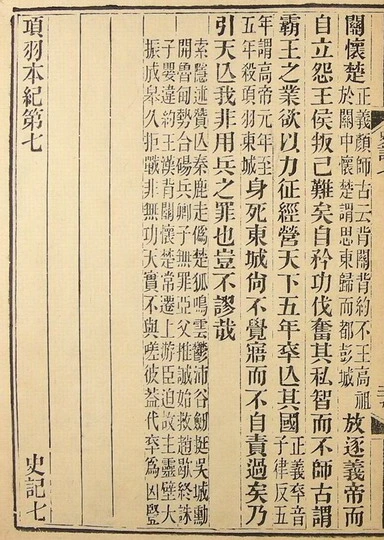 關懷楚正義顏師古云背關背約不王高祖於關中懷楚謂思東歸而都彭城放逐義帝而
自立怨王侯叛己難矣自矜功伐奮其私智而不師古謂
霸王之業欲以力征經營天下五年卒亾其國正義卒音子律反五
年謂高帝元年至五年殺項羽東城身死東城尚不覺寤而不自責過矣乃
引天亾我非用兵之罪也豈不謬哉
索隱述贊亾秦鹿走僞楚狐鳴雲鬱沛谷劒挺吳城勳
開魯甸勢合碭兵卿子無罪亞父推誠始救趙歇終誅
子嬰違約王漢背關懷楚常遷上游臣迫故主靈壁大
振成臯久拒戰非無功天實不與嗟彼葢代卒爲凶豎
項羽本紀第七
史記七